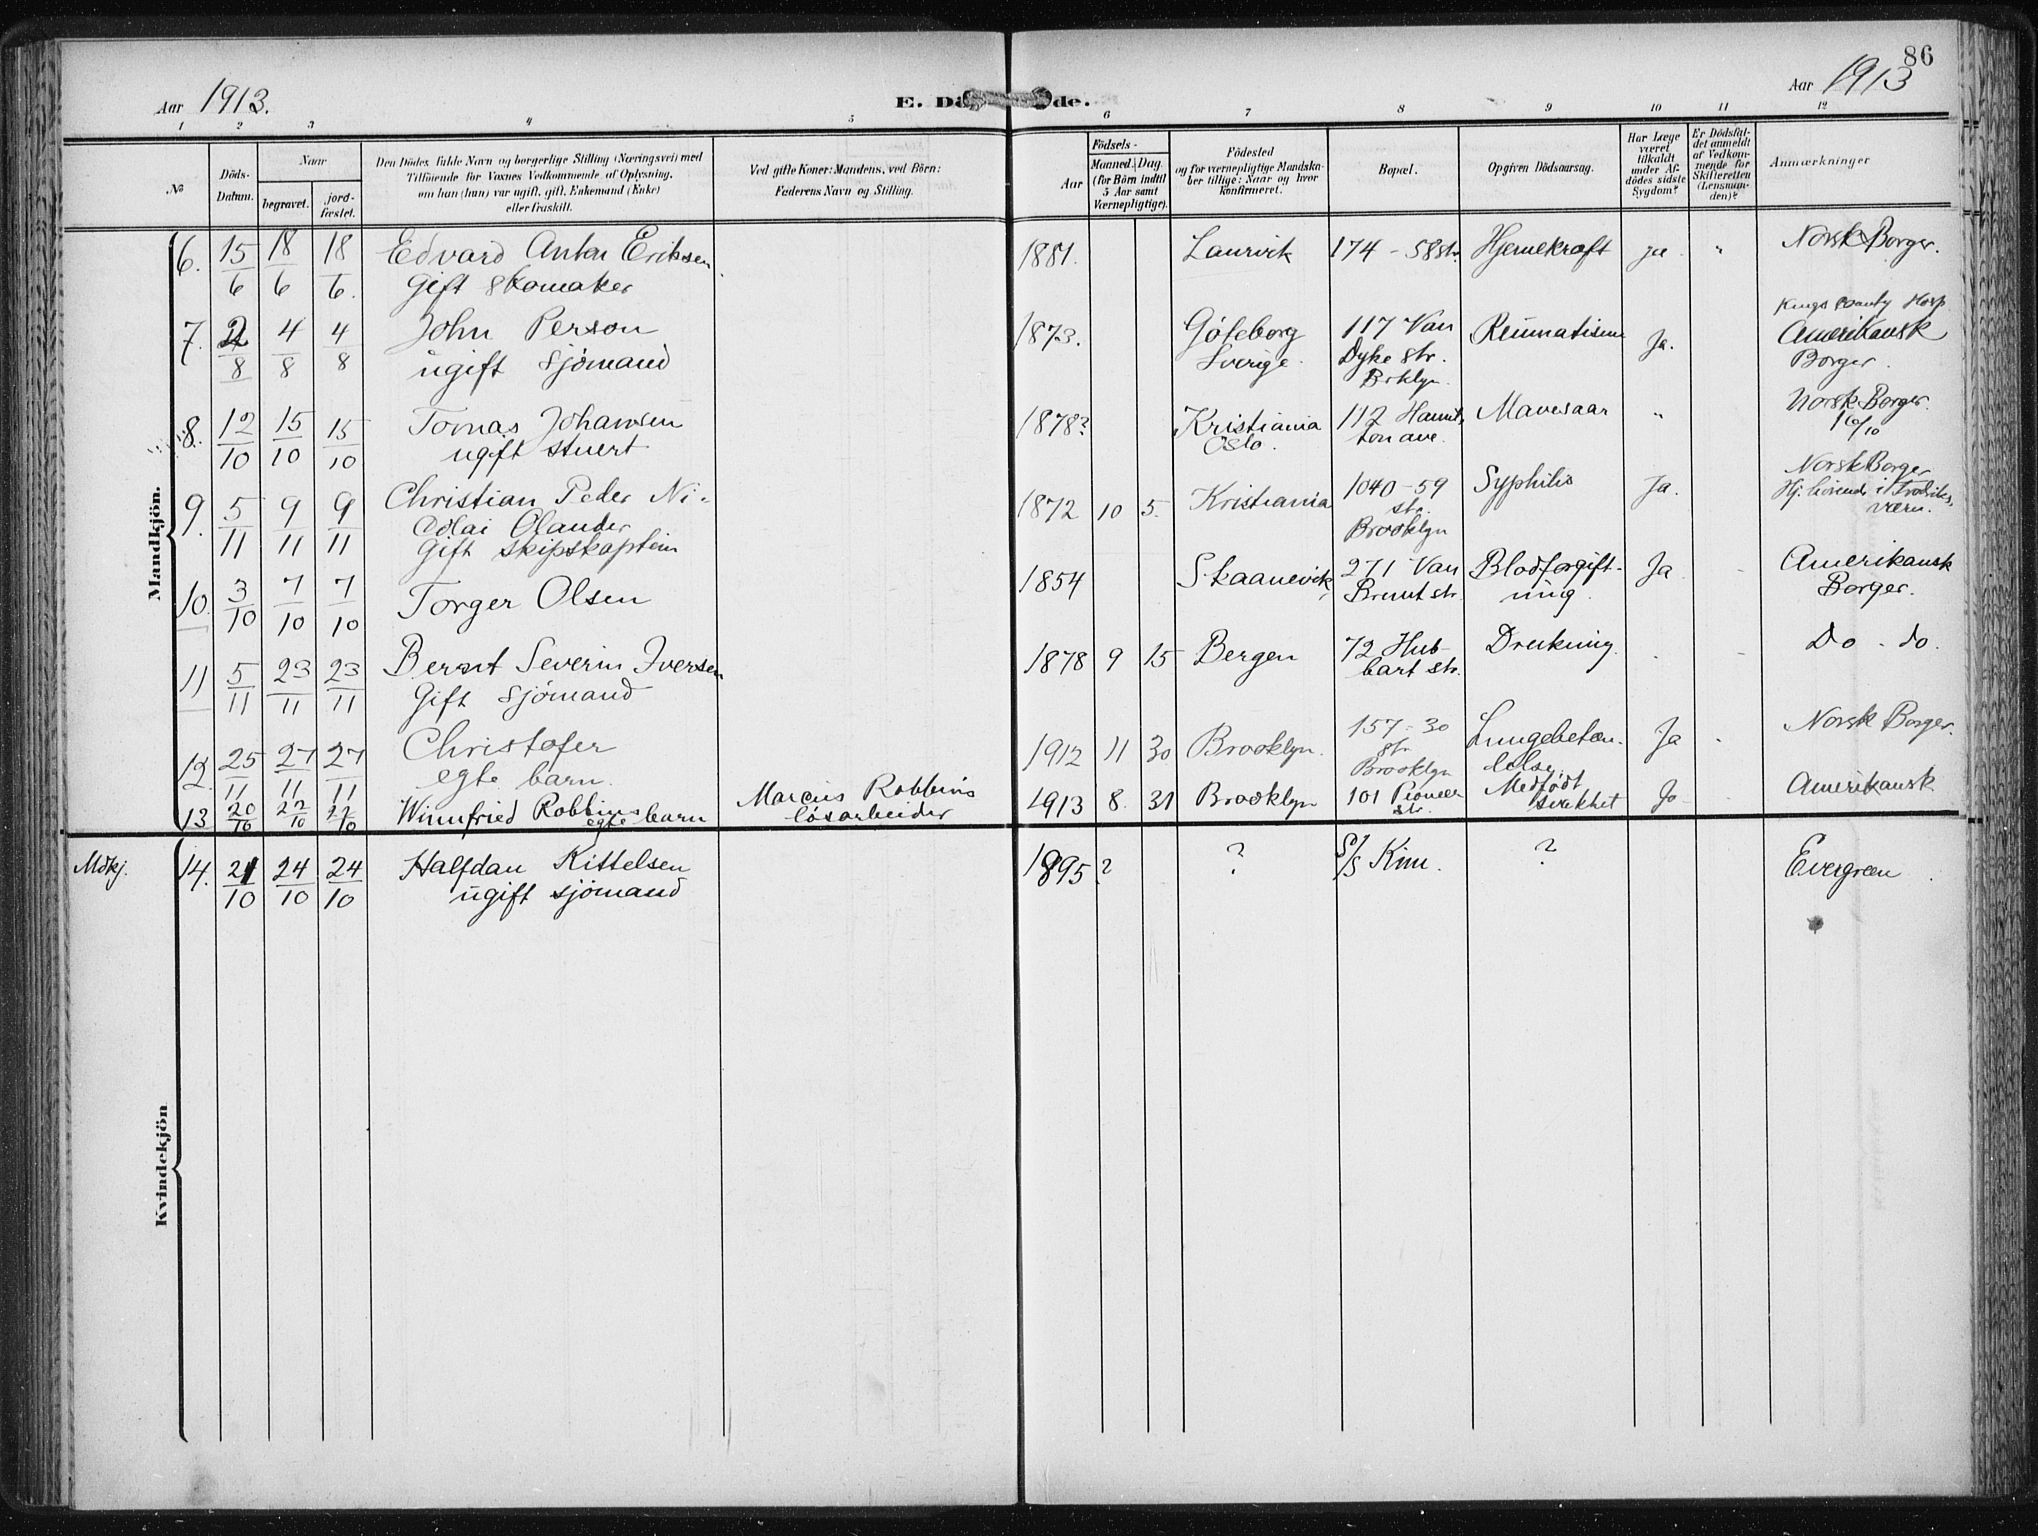 86
Aar 1913. E. Dö de. Aar 1913
1 2 3 4 5 6 7 8 9 10 11 12
No
Döds-
Datum.
Naar
begravet.
jord-
fæstet.
Den Dödes fulde Navn og borgerlige Stilling (Næringsvei) med
Tilföiende for Voxnes Vedkommende af Oplysning,
om han (hun) var ugift, gift, Enkemand (Enke)
eller fraskilt.
Ved gifte Koner: Mandens, ved Börn:
Faderens Navn og Stilling.
Födsels-
Aar
Maaned. Dag.
(for Börn indtil
5 Aar samt
Værnepligtige).
Födested
og for værnepligtige Mandska-
ber tillige: Naar og hvor
konfirmeret.
Bopæl.
Opgiven Dödsaarsag.
Har Læge
været
tilkaldt
under Af-
dödes sidste
Sygdom?
Er Dödsfal-
det anmeldt
af Vedkom-
mende for
Skifteretten
(Lensman-
den)?
Anmærkninger
Mandkjön.
6. 15/6 18/6 18/6. Edvard Anton Eriksen
Gift Skomaker
1881. Laurvik 174 - 58 str. Hjernekræft ja " Norsk Borger.
7. 2/8 4/8 4/8 John Person
ugift Sjömand
1873. Göteborg
Sverige.
117 Van
Dyke str.
Brklyn.
Reumatisme Ja.
Kings County Hosp
Amerikansk
Borger.
8. 12/10 15/10 15/10 Tomas Johansen
ugift stuert
1878? Kristiania
Oslo.
112 Hamil-
ton ave.
Mavesaar "
Norsk Borger.
16/10
9. 5/11 9/11 9/11 Christian Peder Ni-
colai Olander
Gift skipskaptein
1872 10 5. Kristiania
1040 - 59
str.
Brooklyn
Syphilis Ja.
Norsk Borger
Hj. hörende i Fredriks
værn.
10. 3/10 7/10 7/10 Torger Olsen
1854 Skaanevik
271 Van
Brunt str.
Blodforgift-
ning.
Ja
Amerikansk
Borger.
11 5/11 23/11 23/11 Bernt Severin Iversen
Gift Sjömand
1878 9 15 Bergen
72 Hub-
bart str.
Drukning. Do - do.
12. 25/11 27/11 27/11 Christofer
egte barn.
1912 11 30 Brooklyn.
157 - 30
str.
Brooklyn
Lungebetæn-
delse
Ja Norsk Borger.
13 20/10 22/10 22/10 Winnfried Robbins
egte barn
Marcus Robbins
lösarbeider
1913 8. 31 Brooklyn
101 Pioneer
str.
Medfödt
svakhet
Ja Amerikansk
Mdkj. 14. 21/10 24/10 24/10 Halfdan Kittelsen
ugift sjömand
1895? ? S/S Kim. ? Evergreen.
Kvindekjön